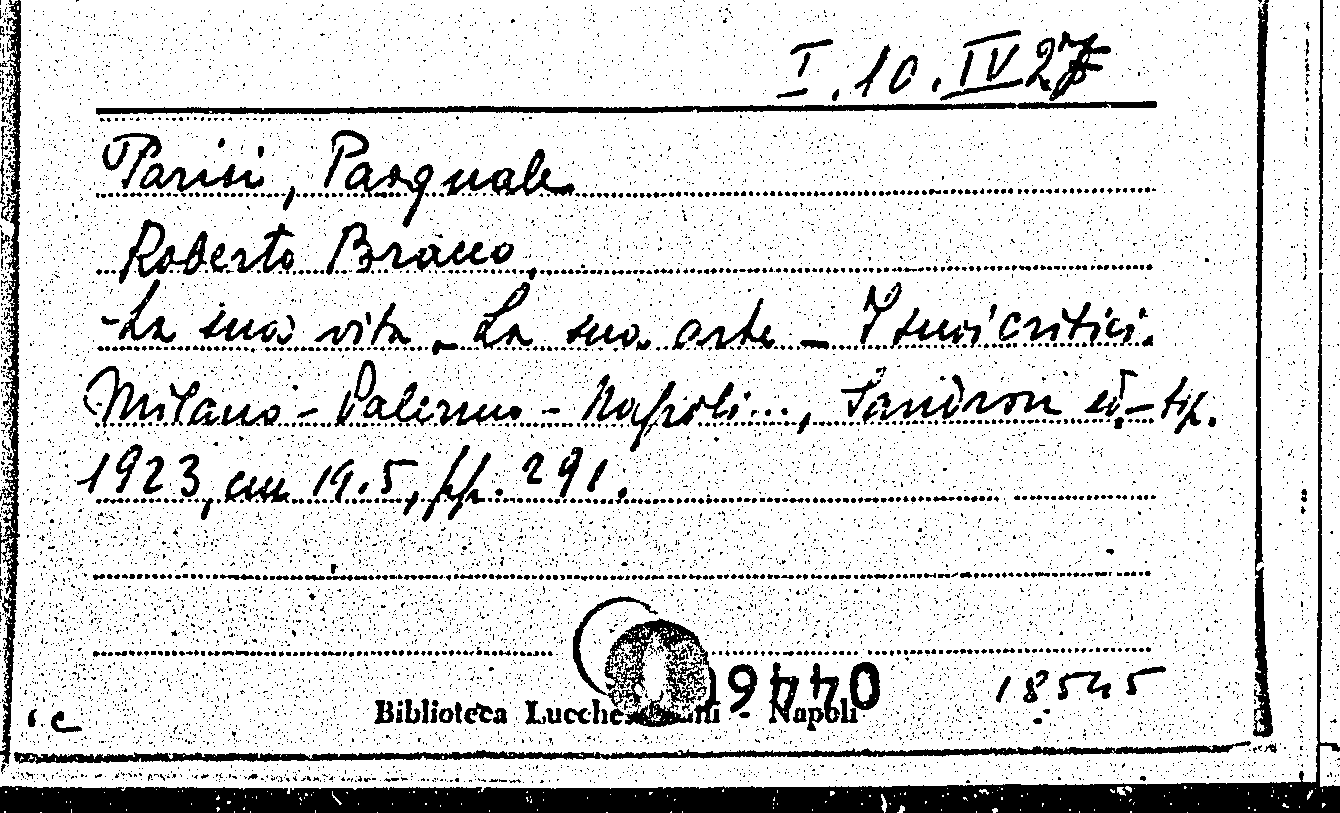 I. 10. IV 27
Parisi, Pasquale
Roberto Bracco,
- La sua vita - La sua arte - I suoi critici.
Milano - Palermo - Napoli..., Sandron ed.-tip.
1923, cm 19.5, pp. 291.
18545
Biblioteca - Napoli
i.c